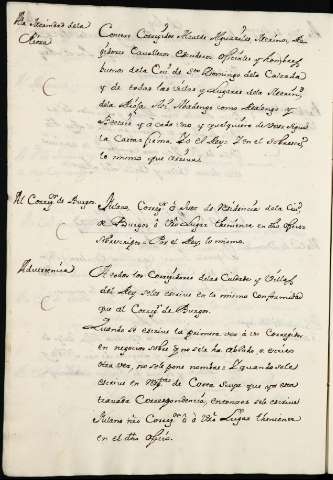 A la Merindad de la Rioxa
Concejo Corregidor Alcalde Alguaciles Merinos Re
gidores Cavalleros Escuderos officiales y hombres
buenos de la Ciu.d de S.to Domingo de la Calzada
y de todas las villas y lugares de la Merin.d
de la Rioja
y a cada uno y qualquiera de vos
Carta firma Yo el Rey Y en el sobrescr.to
lo mismo que arriva
Al Correg.or de Burgos.
Fulano Correg.or ó Juez de Residencia de la Ciu.d
de Burgos ó Vro Lugar theniente en dho officio
Sobrescripto = Por el Rey lo mismo.
Advertencia
A todos los Corregidores de las Ciudades y Villas
del Rey se les escrive en la misma conformidad
que al Correg.or de Burgos.
Quando se escrive la primera vez á un Corregidor
en negocios sobre q no se le a hablado o escrito
otra vez, no se le pone nombre: Y quando se le
escrive en resp.ta de Carta Suya que ya está
travada Correspondencia, entonces se le escrive
Fulano nro Correg.or ó á Vro Lugar theniente
en el dho officio.